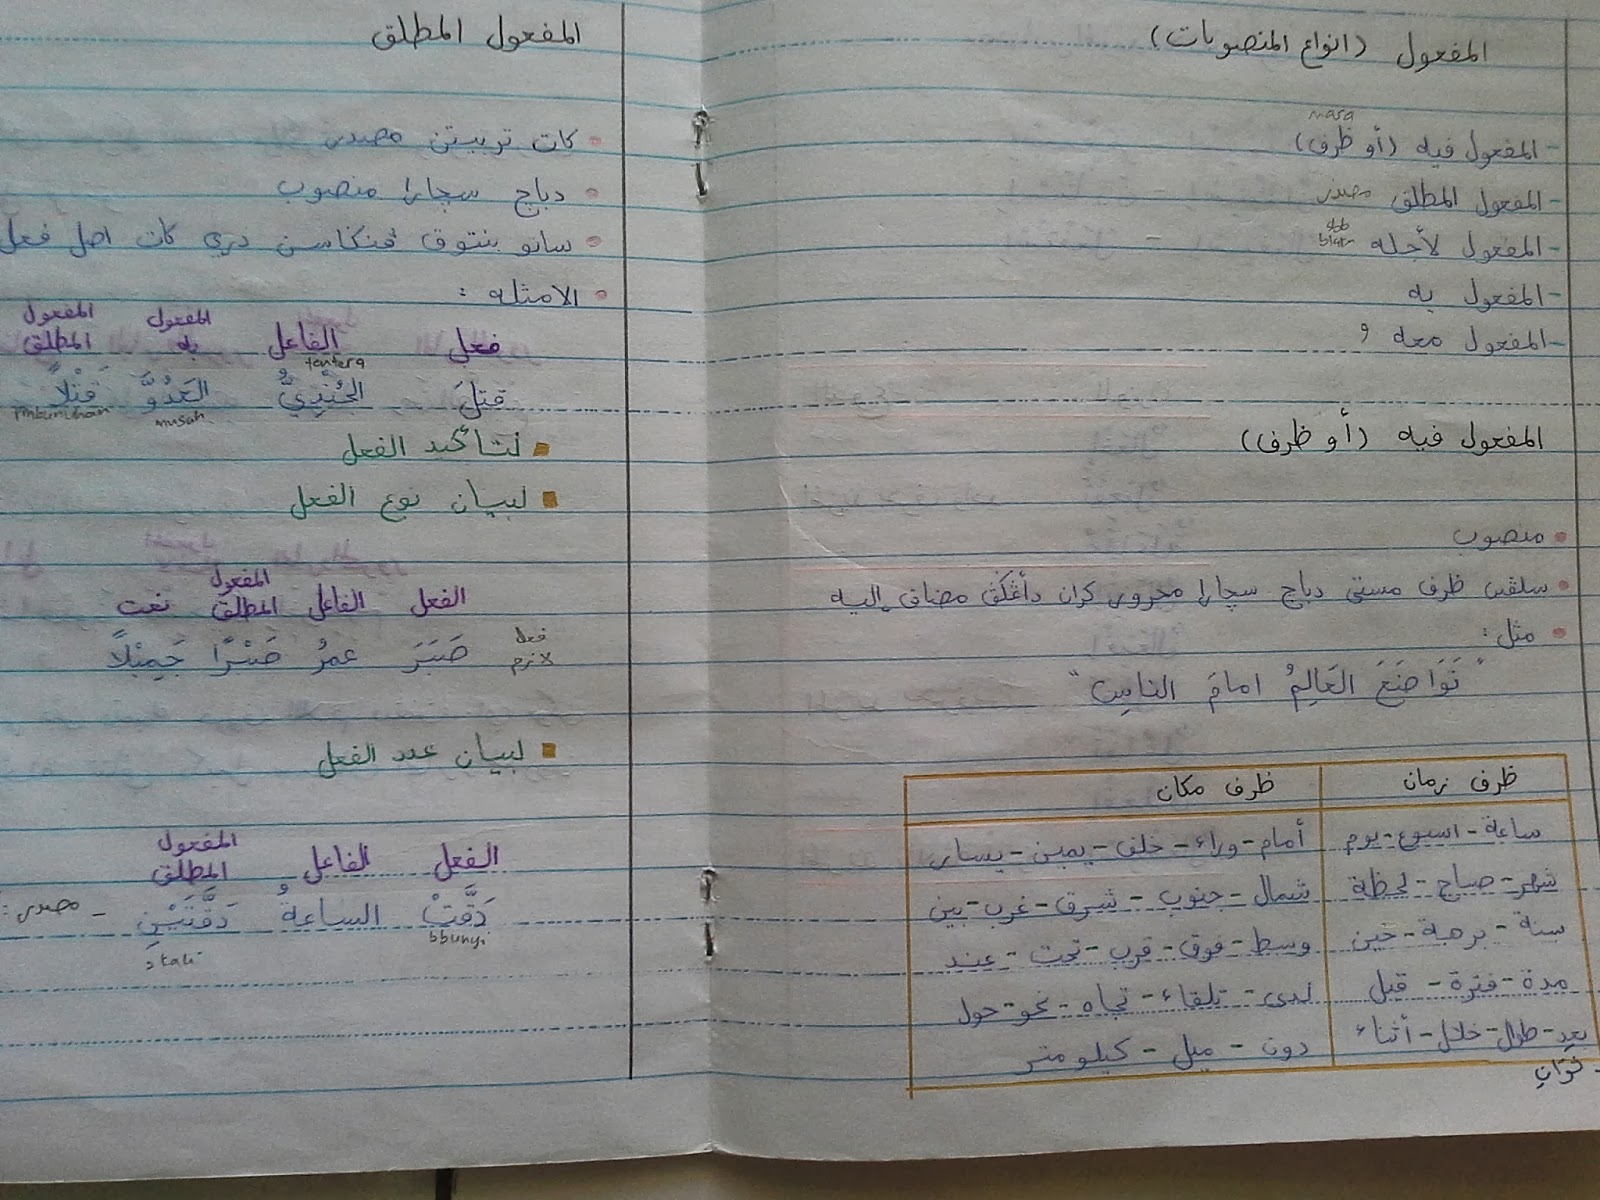 المفعول (انواع المنصوبات)
masa
- المفعول فيه (أو ظرف)
- المفعول المطلق مصدر
- المفعول لأجله
- المفعول به
- المفعول معه و
المفعول فيه (أو ظرف)
• منصوب
• سلڤس ظرف مستي دباچ سچارا مجرور كران دأڠڬڤ مضاف إليه
• مثل:
"تَوَاضَعَ العَالِمُ امامَ الناسِ"
ظرف زمان
ظرف مكان
ساعة - اسبوع - يوم
أمام - وراء - خلف - يمين - يسار
شهر - صباح - لحظة
شمال - جنوب - شرق - غرب - بين
سنة - برهة - حين
وسط - فوق - قرب - تحت - عند
مدة - فترة - قبل
لدى - تلقاء - تجاه - نحو - حول
بعد - طوال - خلال - أثناء
دون - ميل - كيلومتر
المفعول المطلق
• كات تربيتن مصدر
• دباچ سچارا منصوب
• ساتو بنتوق ڤنكاسن دري كات اصل فعل
• الامثله :
فعل الفاعل المفعول به المفعول المطلق
tentera
قتلَ الجُنْدِيُّ العَدُوَّ قَتْلاً
musuh pmbunuhan
لتأكيد الفعل
لبيان نوع الفعل
الفعل الفاعل المفعول المطلق نعت
فعل لازم
صَبَرَ عمرُ صَبْرًا جَمِيْلاً
لبيان عدد الفعل
الفعل الفاعل المفعول المطلق
دَقَّتْ الساعةُ دَقَّتَيْنِ - مصدر :
bbunyi 2 kali